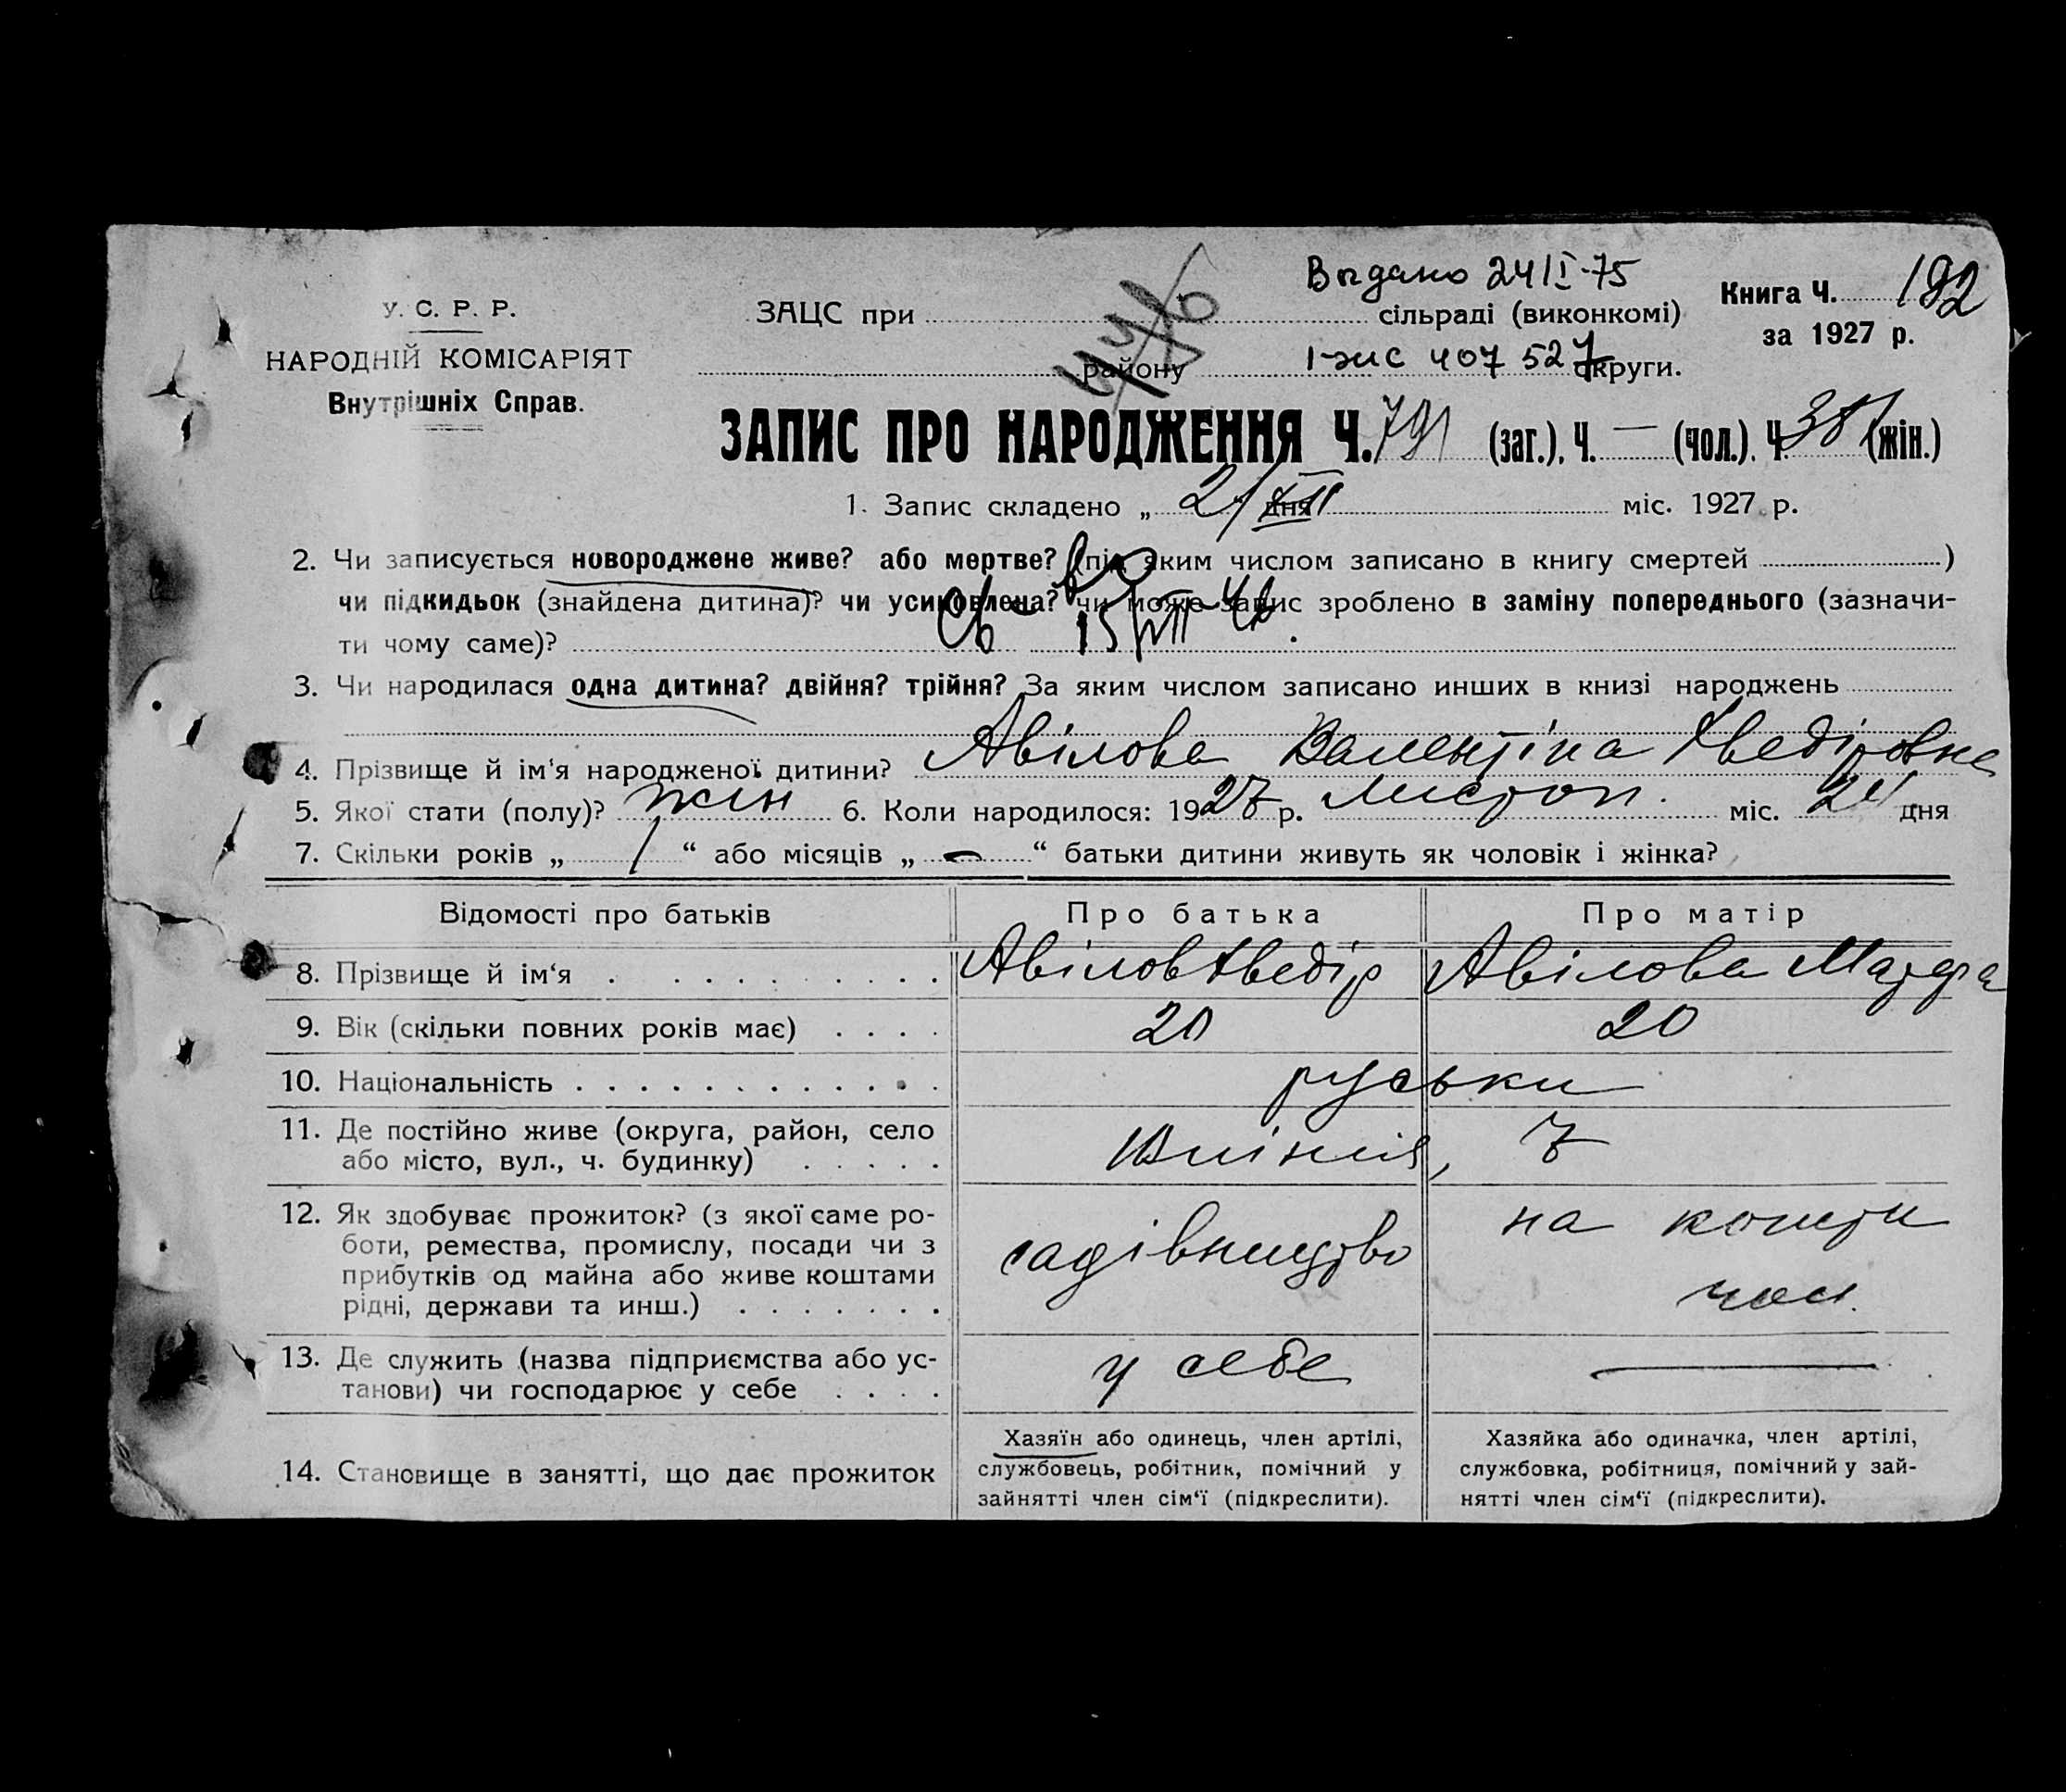 Выдано 24/I-75
У. С. Р. Р.
НАРОДНІЙ КОМІСАРІЯТ
Внутрішніх Справ.
ЗАЦС при сільраді (виконкомі)
району округи.
407 527
Книга Ч. 192
за 1927 р.
ЗАПИС ПРО НАРОДЖЕННЯ Ч. 791 (заг.), Ч. — (чол.). Ч. 381 (жін.)
1. Запис складено „ 21 дня XII міс. 1927 р.
2. Чи записується новороджене живе? або мертве? (під яким числом записано в книгу смертей )
чи підкидьок (знайдена дитина)? чи усиновлена? чи може запис зроблено в заміну попереднього (зазначи-
ти чому саме)?
3. Чи народилася одна дитина? двійня? трійня? За яким числом записано инших в книзі народжень
4. Прізвище й ім'я народженої дитини? Авілова Валентіна Хведіровна
5. Якої стати (полу)? жін 6. Коли народилося: 1927 р. листоп. міс. 24 дня
7. Скільки років „ 1 “ або місяців „ — “ батьки дитини живуть як чоловік і жінка?
Відомості про батьків Про батька Про матір
8. Прізвище й ім‘я Авілов Хведір Авілова Марфа
9. Вік (скільки повних років має) 20 20
10. Національність руськи
11. Де постійно живе (округа, район, село
або місто, вул., ч. будинку) 7
12. Як здобуває прожиток? (з якої саме ро-
боти, ремества, промислу, посади чи з
прибутків од майна або живе коштами
рідні, держави та инш.)
садівництво
на кошти
чол.
13. Де служить (назва підприємства або ус-
танови) чи господарює у себе
у себе —
14. Становище в занятті, що дає прожиток
Хазяїн або одинець, член артілі,
службовець, робітник, помічний у
зайнятті член сім‘ї (підкреслити).
Хазяйка або одиначка, член артілі,
службовка, робітниця, помічний у зай-
нятті член сім‘ї (підкреслити).